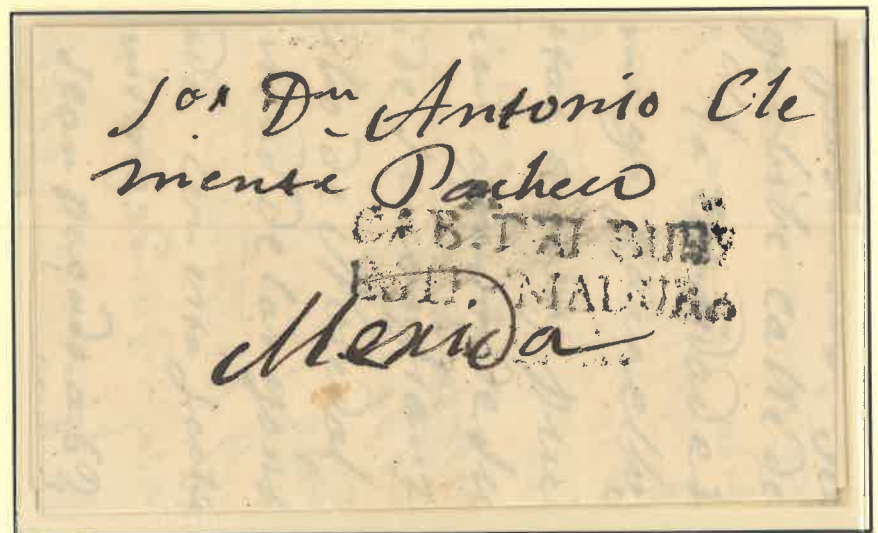 Sor Dn Antonio Cle
mente Pacheco
CAB. DEL BUEY
MADURA
Merida